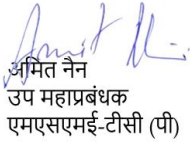 अमित नैन
उप महाप्रबंधक
एमएसएमई-टीसी (पी)